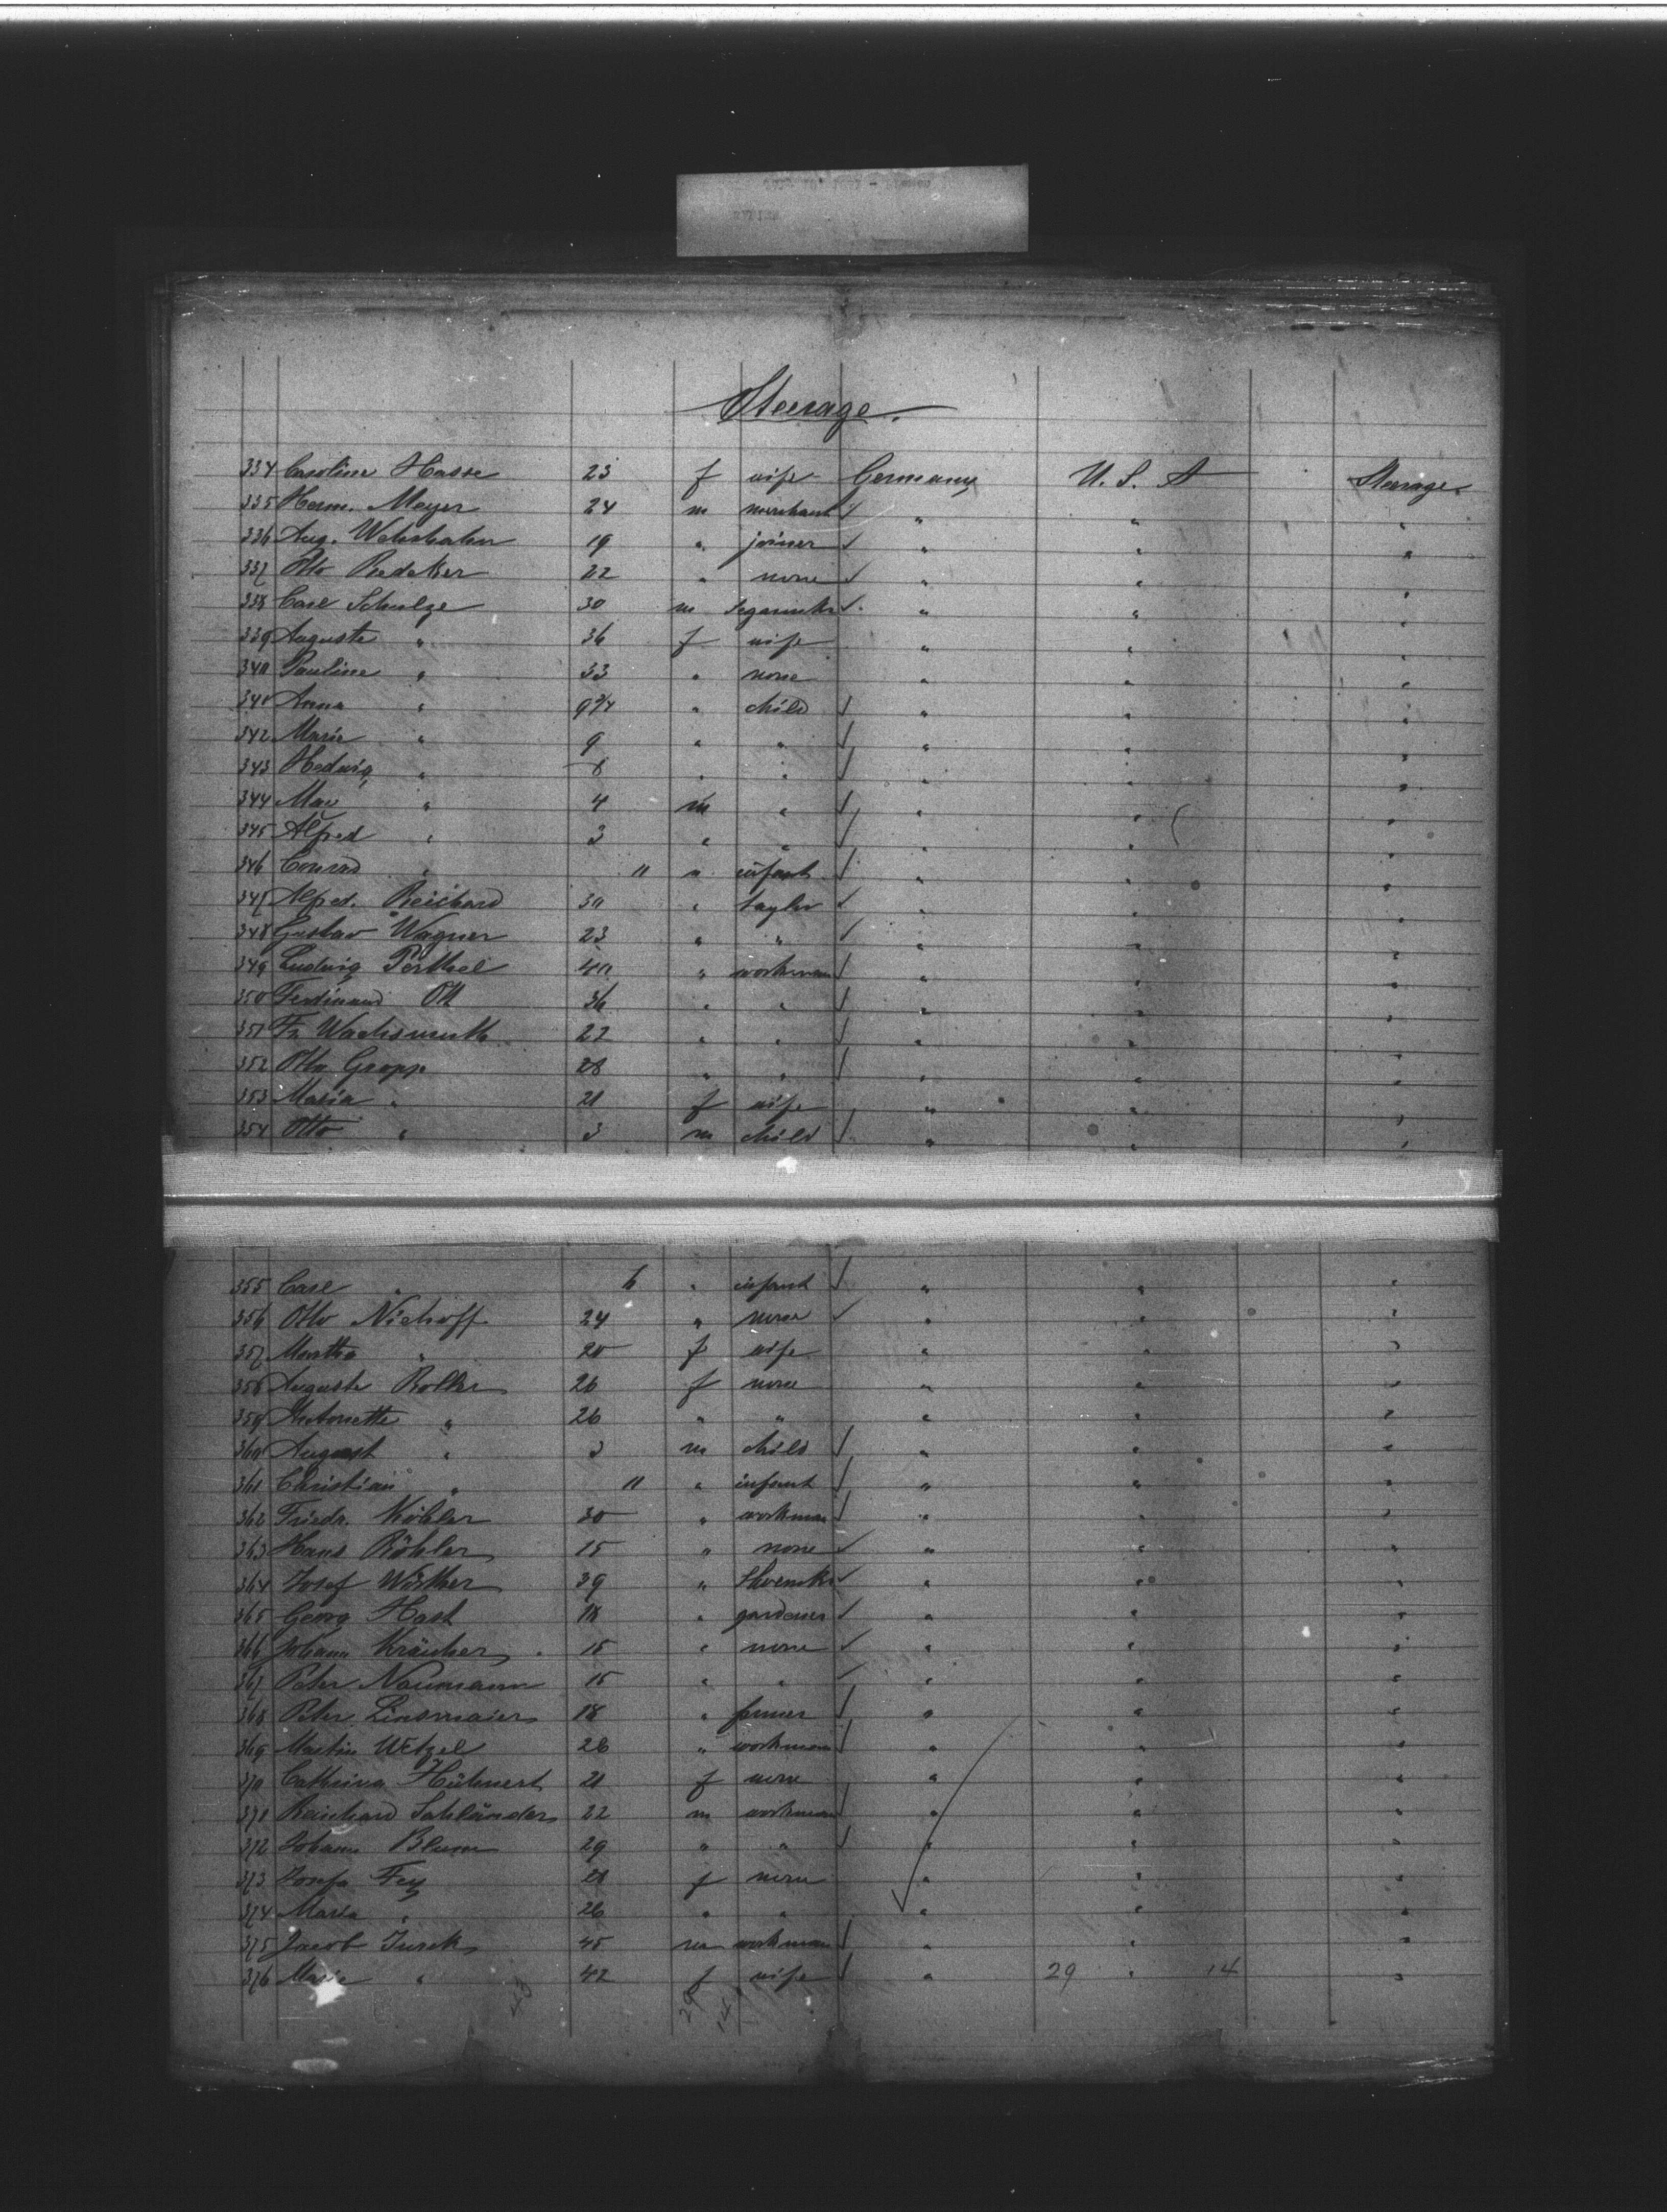 Steerage.
334 Caroline Hasse 23 f wife Germany U. S. A Steerage
335 Herm. Meyer 24 m merchant " " "
336 Aug. 19 " joiner " " "
337 Otto Redeker 22 " none " " "
338 Carl Schulze 30 m " " "
339 Auguste " 36 f wife " " "
340 Pauline " 33 " none " " "
341 Anna " 9¾ " child " " "
342 Marie " 9 " " " " "
343 Hedwig " 8 " " " " "
344 Max " 4 m " " " "
345 Alfred " 3 " " " " "
346 Conrad " 11 " infant " " "
347 Alfred. Reichard 30 " taylor " " "
348 Gustav Wagner 23 " " " " "
349 Ludwig Perthel 40 " workman " " "
350 Ferdinand Ott 36 " " " " "
351 Fr. Wachsmuth 22 " " " " "
352 Otto Gropp 28 " " " " "
353 Maria " 21 f wife " " "
354 Otto " 3 m child " " "
355 Carl " 6 " infant " " "
356 Otto Niehoff 24 " none " " "
357 Martha " 20 f wife " " "
358 Auguste 26 f none " " "
359 Antonette " 26 " " " " "
360 August " 3 m child " " "
361 Christian " 11 " infant " " "
362 Friedr. Köhler 30 " workman " " "
363 Hans Köhler 15 " none " " "
364 Josef Wörther 39 " " " "
365 Georg Hast 18 " gardener " " "
366 Johann 15 " none " " "
367 Peter Naumann 15 " " " " "
368 Peter Linsmaier 18 " " " "
369 Martin Wetzel 28 " workman " " "
370 Catharina Hühnert 21 f none " " "
371 Reinhard 22 m workman " " "
372 Johann Blum 29 " " " " "
373 Josefa Fey 21 f none " " "
374 Maria " 26 " " " " "
375 Jacob 45 m workman " " "
376 Marie " 42 f wife " 29 " 14 "
43 29 14